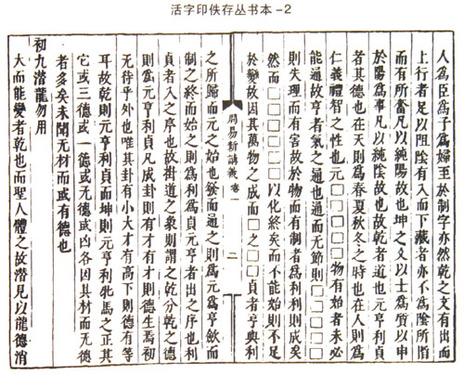 活字印佚存丛书本-2
人爲臣爲子爲婦至於制字亦然乾之文有出而
上行者足以阻陰有入而下藏者亦不爲陰所陷
而有所畜凡以純陽故也坤之文以士爲質以申
於陽爲事凡以純陰故也故乾者道也元亨利貞
者其德也在天則爲春夏秋冬之時也在人則爲
仁義禮智之性也元□□□□□物有始者未必
能通故亨者氣之通也通而无節則□□□□□
則失理而有害故於物而有制者爲利利則成矣
然而□□□□□□以化終矣而不能始則不足
於變故因其萬物之成而□之□□貞者亨與利
周易新講義卷一 二
之所歸而元之始也發而通之則爲元爲亨歛而
制之終而始之則爲利爲貞元亨者出之序也利
貞者入之序也故掛道之象則謂之乾分乾之德
則爲元亨利貞凡成卦則有才有才則德生焉初
无待乎外也唯其卦有小大才有高下則德有等
耳故乾則元亨利貞而坤則元亨利牝馬之正其
它或三德或一德或无德或凶各因其材而无德
者多矣未聞无材而或有德也
初九潛龍勿用
大而能變者乾也而聖人體之故潛見以龍德消